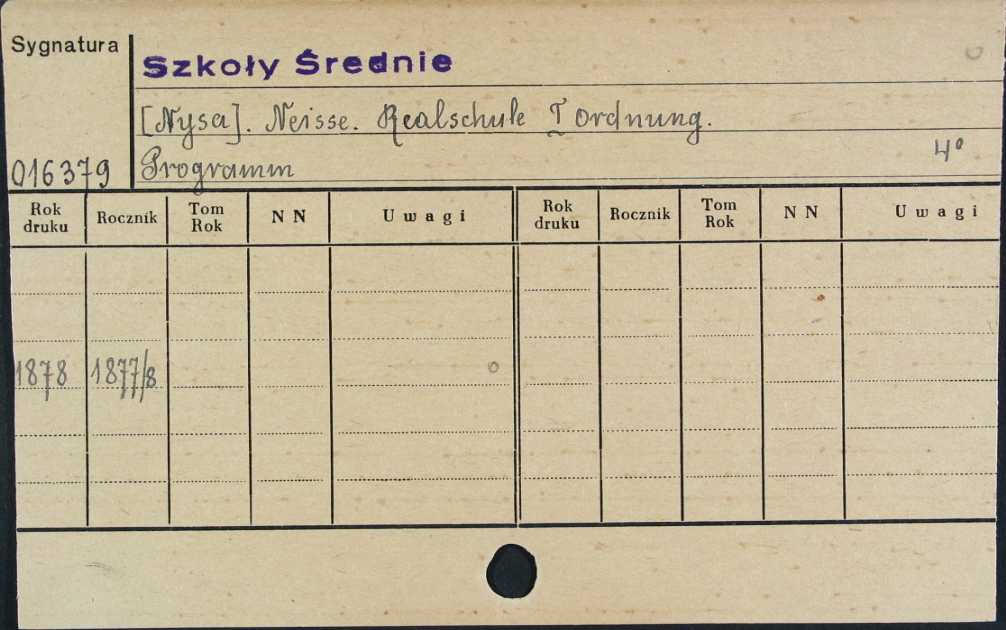 Sygnatura
Szkoły Średnie
[Nysa]. Neisse. Realschule I Ordnung.
016379
Programm
4°
Rok druku Rocznik Tom Rok N N Uwagi Rok druku Rocznik Tom Rok N N Uwagi
1878 1877/8